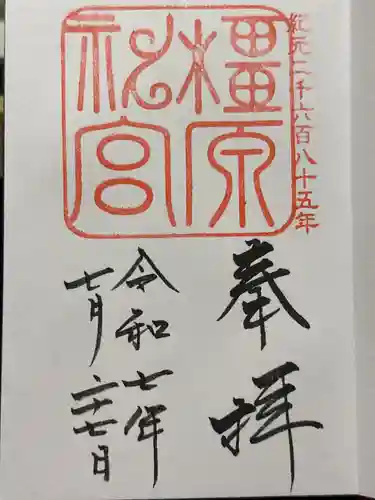 紀元二千六百八十五年
橿原神宮
奉拝
令和七年
七月二十七日